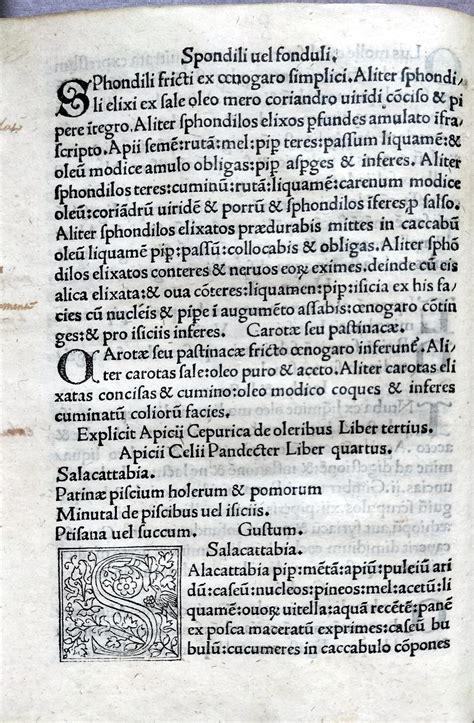 Spondili uel fonduli.
SPhondili fricti ex œnogaro simplici. Aliter sphondi/
li elixi ex sale oleo mero coriandro uiridi cōciso & pi
pere ītegro. Aliter sphondilos elixos pfundes amulato īfra/
scripto. Apii semē:rutā:mel:pip teres:passum liquamē:&
oleū modice amulo obligas:pip aspges & inferes. Aliter
sphondilos teres:cuminū:rutā:liquamē:carenum modice
oleū:coriādrū uiridē & porrū & sphondilos īferes p salso.
Aliter sphondilos elixatos prædurabis mittes in caccabū
oleū liquamē pip:passū:collocabis & obligas. Aliter sphō
dilos elixatos conteres & neruos eoꝝ eximes.deinde cū eis
alica elixata:& oua cōteres:liquamen:pip:isicia ex his fa/
cies cū nucleis & pipe ī augumēto assabis:œnogaro cōtin
ges:& pro isiciis inferes. Carotæ seu pastinacæ.
CArotæ seu pastinacæ fricto œnogaro inferunt. Ali/
ter carotas sale:oleo puro & aceto. Aliter carotas eli
xatas concisas & cumino:oleo modico coques & inferes
cuminatū coliorū facies.
Explicit Apicii Cepurica de oleribus Liber tertius.
Apicii Celii Pandecter Liber quartus.
Salacattabia.
Patinæ piscium holerum & pomorum
Minutal de piscibus uel isiciis.
Ptisana uel succum. Gustum.
Salacattabia.
SAlacattabia pip:mētā:apiū:puleiū ari
dū:caseū:nucleos:pineos:mel:acetū:li
quamē:ouoꝝ uitella:aquā recētē:panē
ex posca maceratū exprimes:caseū bu
bulū:cucumeres in caccabulo cōpones